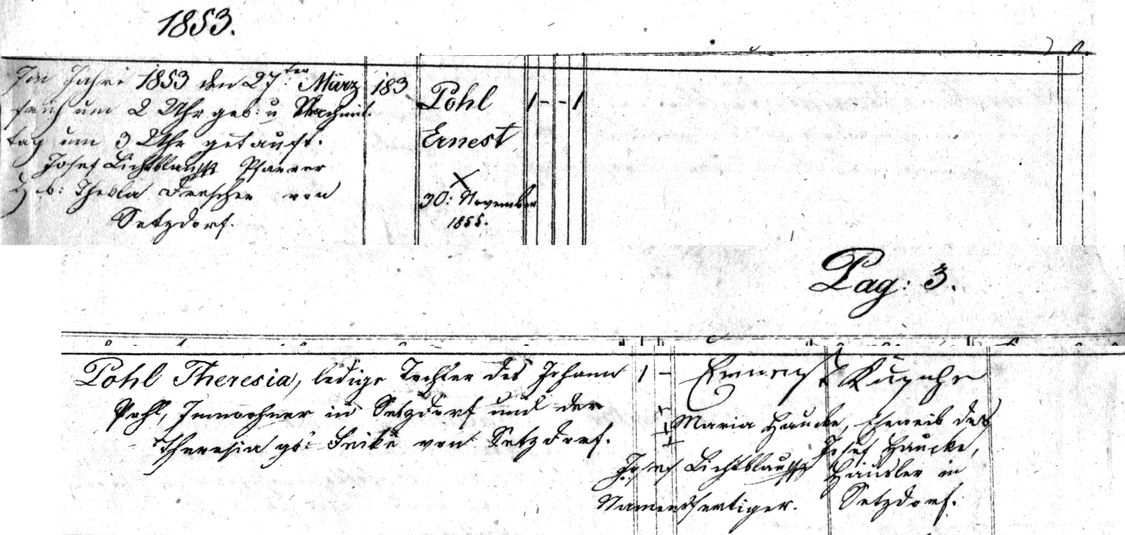 1853.
Im Jahre 1853 den 27ten März
früh um 2 Uhr geb: u Nachmit.
tag um 3 Uhr getauft.
Josef Lichtblau Pfarrer
b: Thekla Drescher von
Setzdorf.
183
Pohl
Ernest
30: November
1855.
1 - - 1
Pag: 3.
Pohl Theresia, ledige Tochter des Johann
Pohl, Inwohner in Setzdorf und der
Theresia ge: von Setzdorf.
1 -
Maria Haucke, Eheweib des
Josef Haucke,
Häusler in
Setzdorf.
Josef Lichtblau
Namensfertiger.